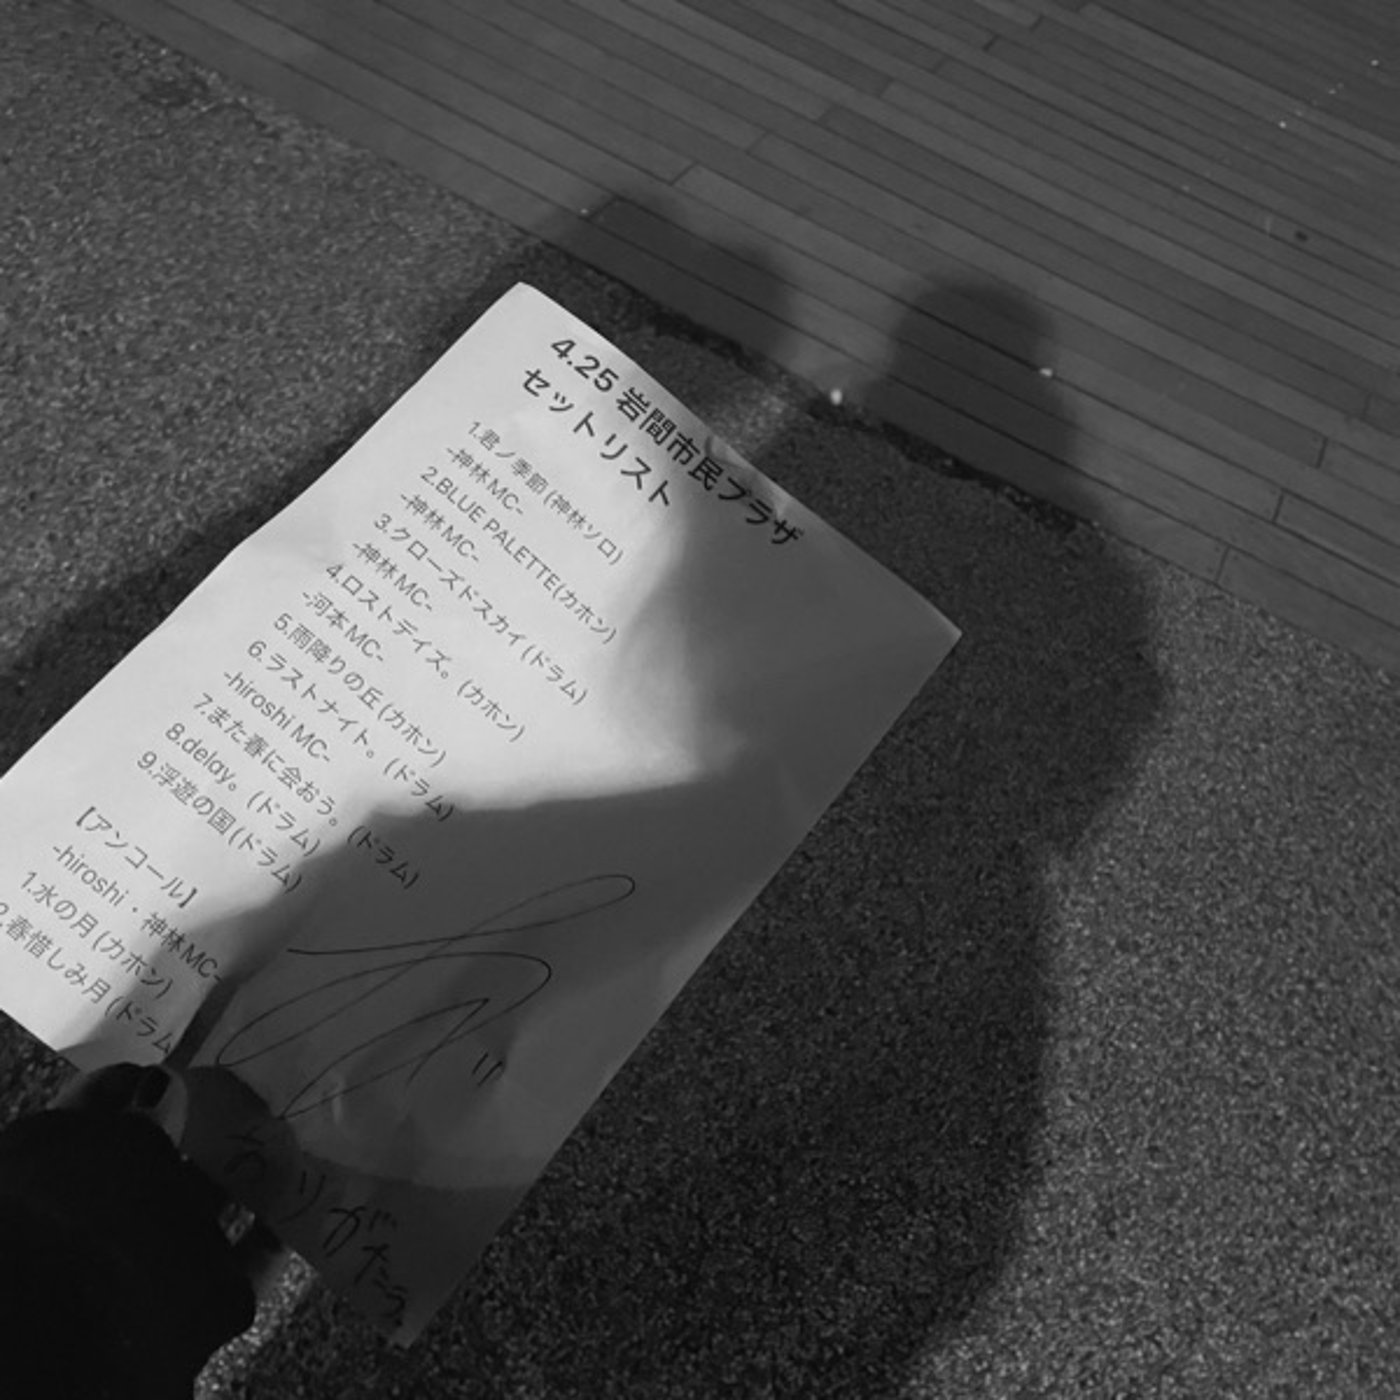 4.25 岩間市民プラザ
セットリスト
1.君ノ季節(神林ソロ)
-神林MC-
2.BLUE PALETTE(カホン)
-神林MC-
3.クローズドスカイ(ドラム)
-神林MC-
4.ロストデイズ。(カホン)
-河本MC-
5.雨降りの丘(カホン)
6.ラストナイト。(ドラム)
-hiroshi MC-
7.また春に会おう。(ドラム)
8.delay。(ドラム)
9.浮遊の国(ドラム)
【アンコール】
-hiroshi・神林MC-
1.水の月(カホン)
2.春惜しみ月(ドラム
ありがとう